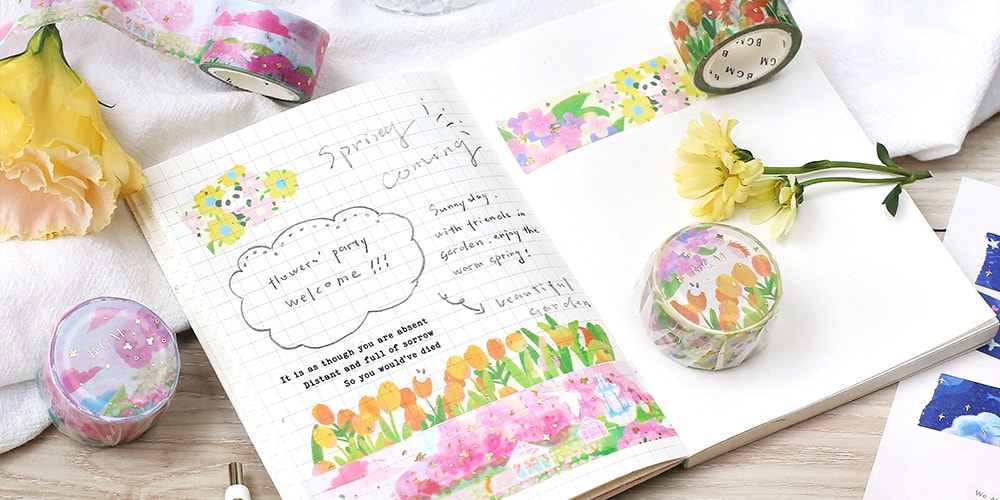 Spring!
coming
Sunny day.
with friends in
garden. enjoy the
warm spring.
beautiful
garden
flowers' party
welcome !!!
It is as though you are absent
Distant and full of sorrow
So you would've died
BGM
BGM
BGM